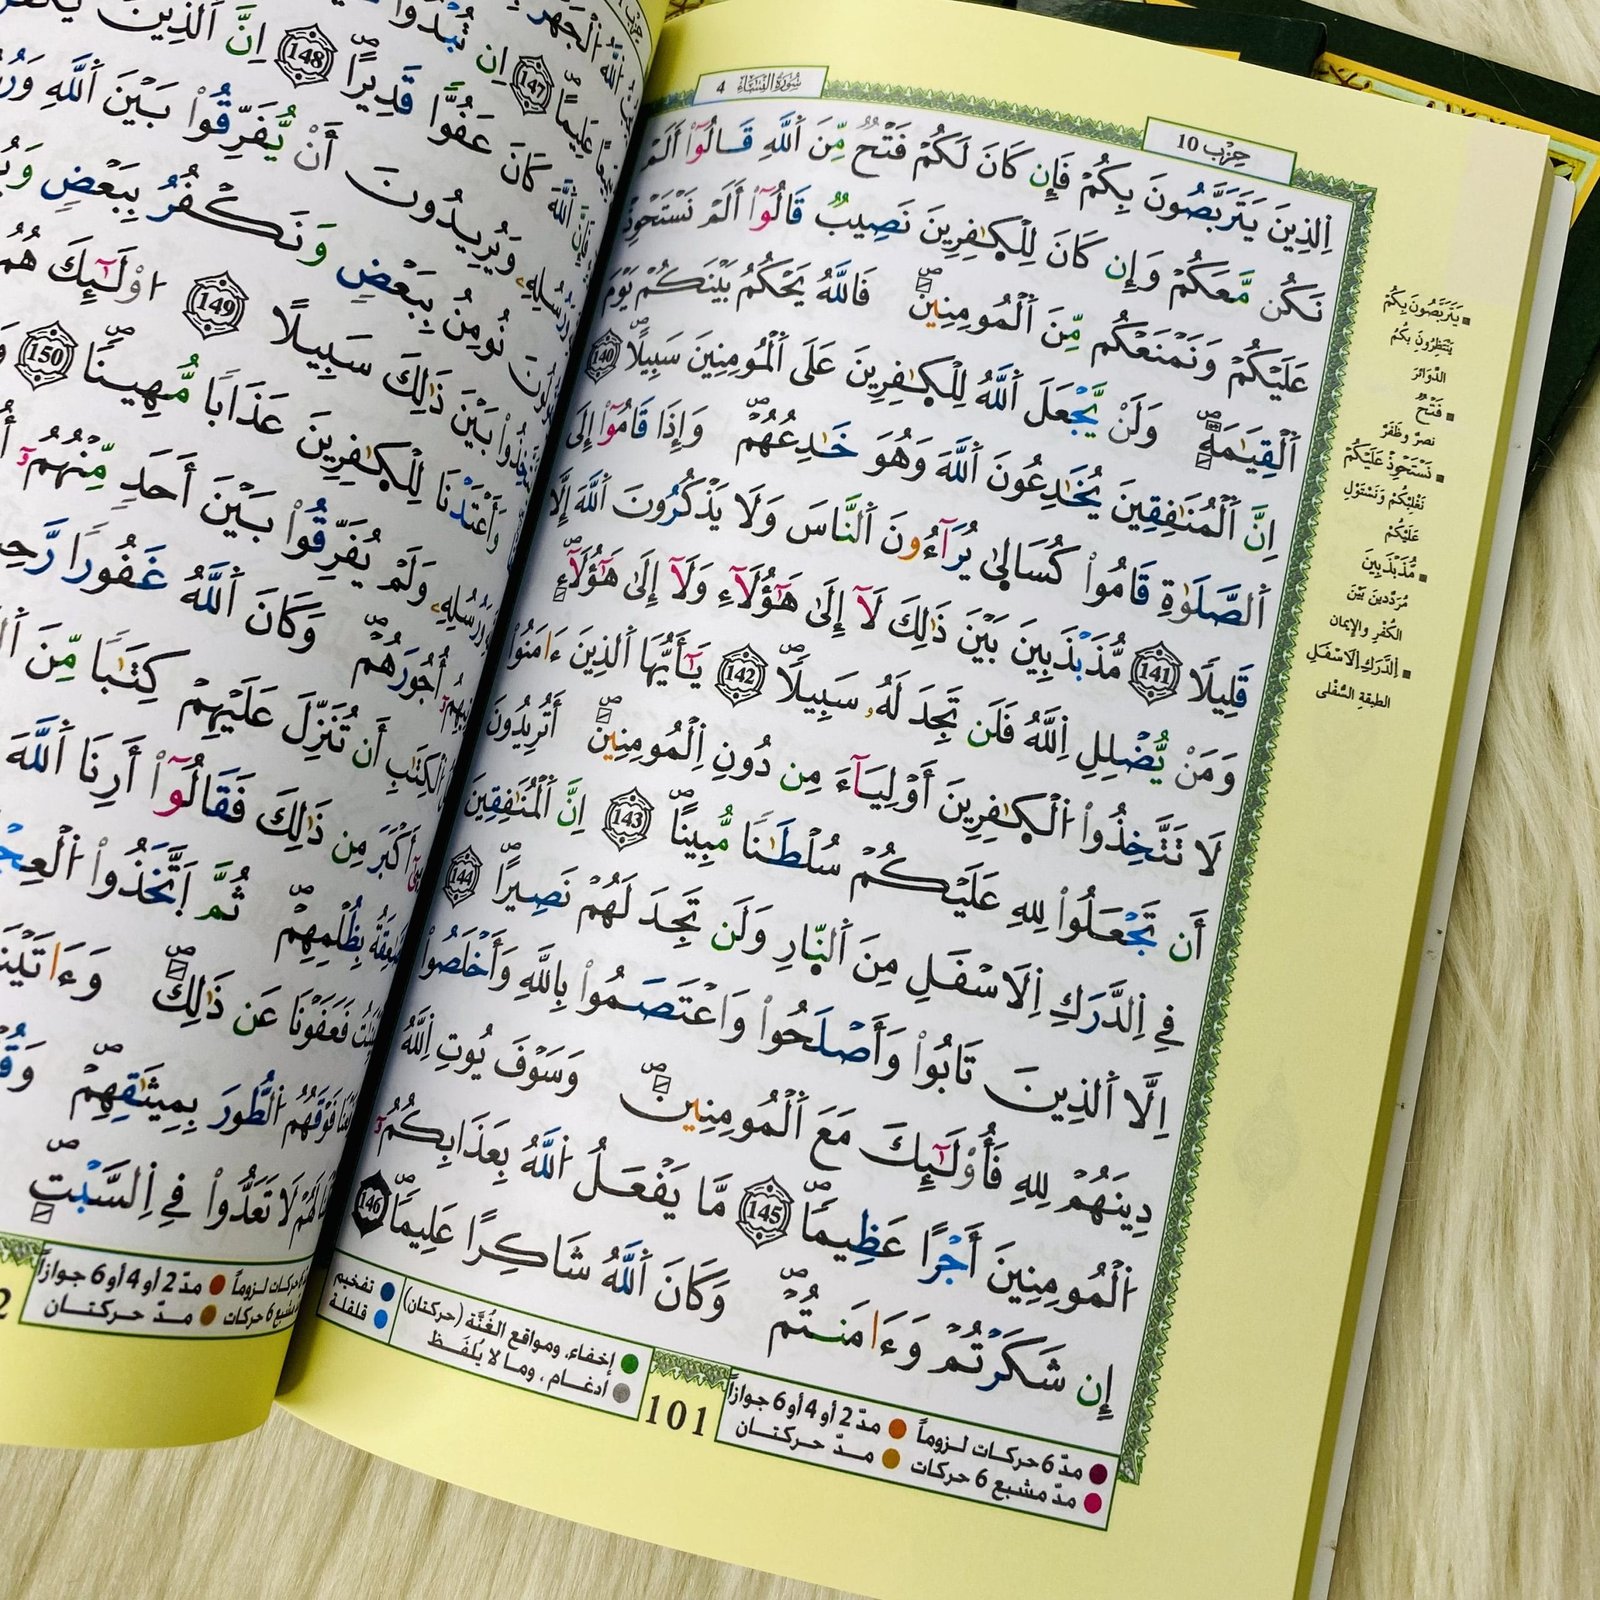 سُورَةُ النِّسَاءِ 4
حِزْب 10
اِ۬لذِينَ يَتَرَبَّصُونَ بِكُمْ فَإِن كَانَ لَكُمْ فَتْحٌ مِّنَ اَ۬للَّهِ قَالُوٓاْ أَلَمْ
نَكُن مَّعَكُمْ وَإِن كَانَ لِلْكٰ۪فِرِينَ نَصِيبٌ قَالُوٓاْ أَلَمْ نَسْتَحْوِذْ
عَلَيْكُمْ وَنَمْنَعْكُم مِّنَ اَ۬لْمُومِنِينَۖ فَاللَّهُ يَحْكُمُ بَيْنَكُمْ يَوْمَ
اَ۬لْقِيَٰمَةِۖ وَلَنْ يَّجْعَلَ اَ۬للَّهُ لِلْكٰ۪فِرِينَ عَلَى اَ۬لْمُومِنِينَ سَبِيلًاۖ 140
اِنَّ اَ۬لْمُنَٰفِقِينَ يُخَٰدِعُونَ اَ۬للَّهَ وَهُوَ خَٰدِعُهُمْۖ وَإِذَا قَامُوٓاْ إِلَى
اَ۬لصَّلَوٰةِ قَامُواْ كُسَالٜىٰ يُرَآءُونَ اَ۬لنَّاسَ وَلَا يَذْكُرُونَ اَ۬للَّهَ إِلَّا
قَلِيلًا 141 مُّذَبْذَبِينَ بَيْنَ ذَٰلِكَ لَآ إِلَىٰ هَٰٓؤُلَآءِ وَلَآ إِلَىٰ هَٰٓؤُلَآءِۖ
وَمَنْ يُّضْلِلِ اِ۬للَّهُ فَلَن تَجِدَ لَهُۥ سَبِيلًاۖ 142 يَٰٓأَيُّهَا اَ۬لذِينَ ءَامَنُواْ
لَا تَتَّخِذُواْ اُ۬لْكٰ۪فِرِينَ أَوْلِيَآءَ مِن دُونِ اِ۬لْمُومِنِينَۖ أَتُرِيدُونَ
أَن تَجْعَلُواْ لِلهِ عَلَيْكُمْ سُلْطَٰنًا مُّبِينًاۖ 143 اِنَّ اَ۬لْمُنَٰفِقِينَ
فِي اِ۬لدَّرَكِ اِ۬لَاسْفَلِ مِنَ اَ۬لنّ۪ارِ وَلَن تَجِدَ لَهُمْ نَصِيرًاۖ 144
اِلَّا اَ۬لذِينَ تَابُواْ وَأَصْلَحُواْ وَاعْتَصَمُواْ بِاللَّهِ وَأَخْلَصُواْ
دِينَهُمْ لِلهِ فَأُوْلَٰٓئِكَ مَعَ اَ۬لْمُومِنِينَۖ وَسَوْفَ يُوتِ اِ۬للَّهُ
اُ۬لْمُومِنِينَ أَجْرًا عَظِيمًاۖ 145 مَّا يَفْعَلُ اُ۬للَّهُ بِعَذَابِكُمُۥٓ
إِن شَكَرْتُمْ وَءَامَنتُمْۖ وَكَانَ اَ۬للَّهُ شَاكِرًا عَلِيمًاۖ 146
يَتَرَبَّصُونَ بِكُمْ
يَنْتَظِرُونَ بِكُمُ
الدَّوَائرَ
فَتْحٌ
نصرٌ وظَفَرٌ
نَسْتَحْوِذْ عَلَيْكُمْ
نَغْلِبْكُمْ وَنَسْتَوْلِ
عَلَيْكُمْ
مُّذَبْذَبِينَ
مُرَدَّدينَ بَيْنَ
الكُفْرِ والإيمان
اِ۬لدَّرَكِ اِ۬لَاسْفَلِ
الطبقةِ السُّفْلى
مدّ 6 حركات لـزوماً مدّ 2 أو 4 أو 6 جوازاً
مدّ مشبع 6 حركات مـدّ حـركتــان
101
إخفاء، ومواقع الغُنَّة (حركتان) تفخيم
ادغـام ، ومـا لا يُلفَـظ قلقلة
147 اِن تُبْدُواْ
كَانَ عَفُوًّا قَدِيرًاۖ 148 اِنَّ اَ۬لذِينَ
وَيُرِيدُونَ أَنْ يُّفَرِّقُواْ بَيْنَ اَ۬للَّهِ
نُومِنُ بِبَعْضٍ وَنَكْفُرُ بِبَعْضٍ
بَيْنَ ذَٰلِكَ سَبِيلًا 149 اُوْلَٰٓئِكَ هُمُ
وَأَعْتَدْنَا لِلْكٰ۪فِرِينَ عَذَابًا مُّهِينًاۖ 150
وَلَمْ يُفَرِّقُواْ بَيْنَ أَحَدٍ مِّنْهُمُۥٓ
أُجُورَهُمْۖ وَكَانَ اَ۬للَّهُ غَفُورًا
أَن تُنَزِّلَ عَلَيْهِمْ كِتَٰبًا مِّنَ
أَكْبَرَ مِن ذَٰلِكَ فَقَالُوٓاْ أَرِنَا اَ۬للَّهَ
بِظُلْمِهِمْۖ ثُمَّ اَ۪تَّخَذُواْ
فَعَفَوْنَا عَن ذَٰلِكَۖ
فَوْقَهُمُ اُ۬لطُّورَ بِمِيثَٰقِهِمْۖ
لَا تَعَدُّواْ فِي اِ۬لسَّبْتِۖ
حركات لـزوماً مدّ 2 أو 4 أو 6 جوازاً
مشبع 6 حركات مـدّ حـركتــان